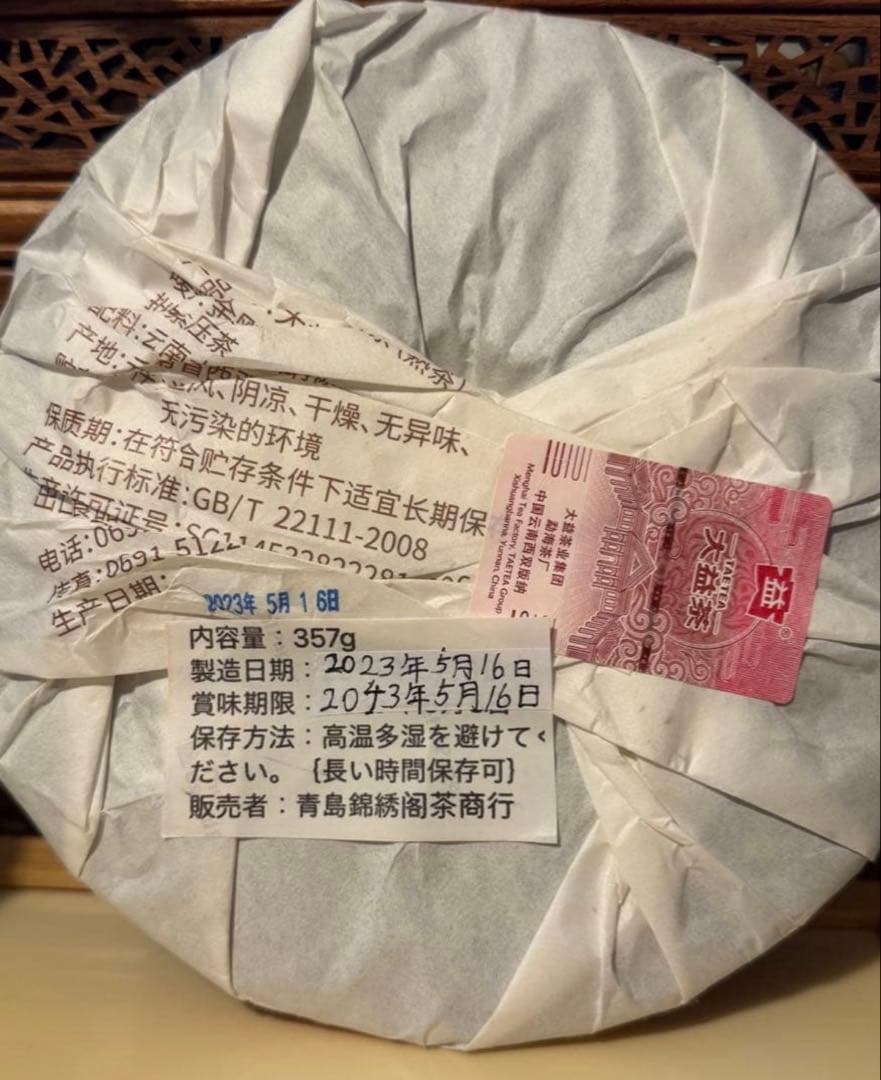 紧压茶
配料:云南省西
产地:
风、阴凉、干燥、无异味、
无污染的环境
保质期:在符合贮存条件下适宜长期保
产品执行标准:GB/T 22111-2008
许可证号:
电话:069
传真:0691
生产日期:
2023年 5月 16日
大益茶业集团
勐海茶厂
中国云南西双版纳
Menghai Tea Factory, TAETEA Group
Xishuangbanna, Yunnan, China
大益茶
TAETEA
益
®
内容量:357g
製造日期:2023年5月16日
賞味期限:2043年5月16日
保存方法:高温多湿を避けてく
ださい。{長い時間保存可}
販売者:青島錦綉阁茶商行